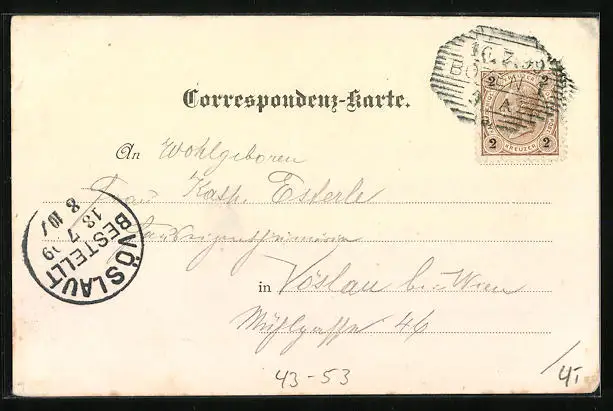 16.7.99
BOZEN
2 2
KREUZER
2 2
Correspondenz-Karte.
An Wohlgeboren
Frau Kasp. Esterle
in Vöslau bei Wien
Mühlgasse 46
VÖSLAU
BESTELLT
18 7 99
8
43-53
4,-